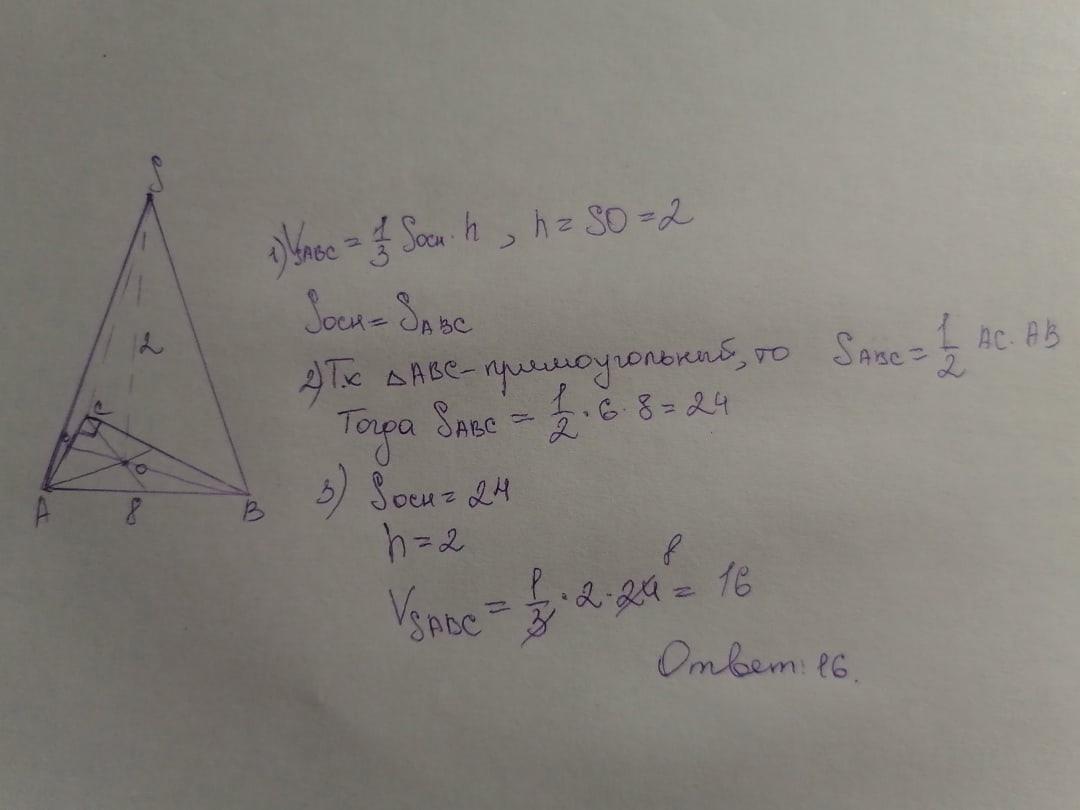 S
1) V_SABC = 1/3 Sосн · h , h = SO = 2
2
Sосн = S_ABC
2) Т.к △ABC - прямоугольный, то S_ABC = 1/2 AC · AB
C
Тогда S_ABC = 1/2 · 6 · 8 = 24
O
A 8 B
3) Sосн = 24
h = 2
V_SABC = 1/3 · 2 · 24 8 = 16
Ответ: 16.